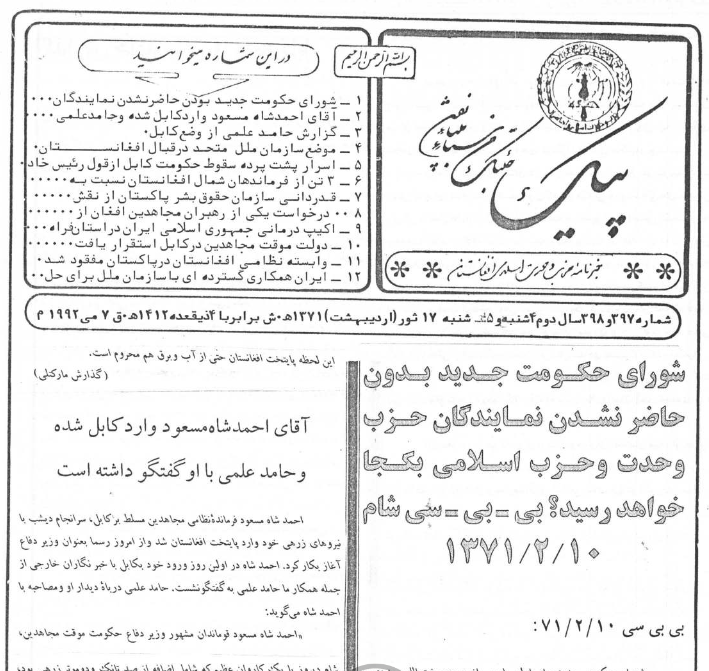 بسم الله الرحمن الرحیم
در این شماره میخوانید
۱ ــ شورای حکومت جدید بدون حاضرنشدن نمایندگان۰۰۰
۲ ــ آقای احمدشاه مسعود واردکابل شده وحامدعلمی۰۰۰۰
۳ ــ گزارش حامد علمی از وضع‌کابل۰
۴ ــ موضع سازمان ملل متحد درقبال افغانستان۰
۵ ــ اسرار پشت پرده سقوط حکومت کابل ازقول رئیس خاد۰
۶ ــ ۳ تن از فرماندهان شمال افغانستان نسبت به۰۰۰۰۰
۷ ــ قدردانی سازمان حقوق بشر پاکستان از نقش۰۰۰۰۰
۸ ۰۰ درخواست یکی از رهبران مجاهدین افغان از۰۰۰۰۰۰
۹ ــ اکیپ درمانی جمهوری اسلامی ایران دراستان‌فراه۰۰۰
۱۰ ــ دولت موقت مجاهدین درکابل استقرار یافت۰۰۰۰۰۰
۱۱ ــ وابسته نظامی افغانستان درپاکستان مفقود شد۰
۱۲ ــ ایران همکاری گسترده ای باسازمان ملل برای حل۰۰
پیک
خبرنامه حزب وحدت اسلامی افغانستان
شماره۳۹۷و۳۹۸سال دوم۴شنبه‌و۵شنبه ۱۷ ثور(اردیبهشت)۱۳۷۱ه‍۰ش برابربا ۴ذیقعده۱۴۱۲ه‍۰ق ۷ می۱۹۹۲ م
شورای حکومت جدید بدون
حاضر نشدن نمایندگان حزب
وحدت وحزب اسلامی بکجا
خواهد رسید؟ بی ـ بی ـ سی شام
۱۳۷۱/۲/۱۰
بی بی سی ۷۱/۲/۱۰:
این لحظه پایتخت افغانستان حتی از آب وبرق هم محروم است.
(گذارش مارکتلی)
آقای احمدشاه‌مسعود وارد کابل شده
وحامد علمی با او گفتگو داشته است
احمد شاه مسعود فرماندهٔ‌نظامی مجاهدین مسلط برکابل، سرانجام دیشب با
نیروهای زرهی خود وارد پایتخت افغانستان شد واز امروز رسما بعنوان وزیر دفاع
آغاز بکار کرد. احمد شاه در اولین روز ورود خود بکابل با خبر نگاران خارجی از
جمله همکار ما حامد علمی به گفتگونشست. حامد علمی دربارهٔ دیدار او ومصاحبه با
احمد شاه می‌گوید:
«احمد شاه مسعود قوماندان مشهور وزیر دفاع حکومت موقت مجاهدین،